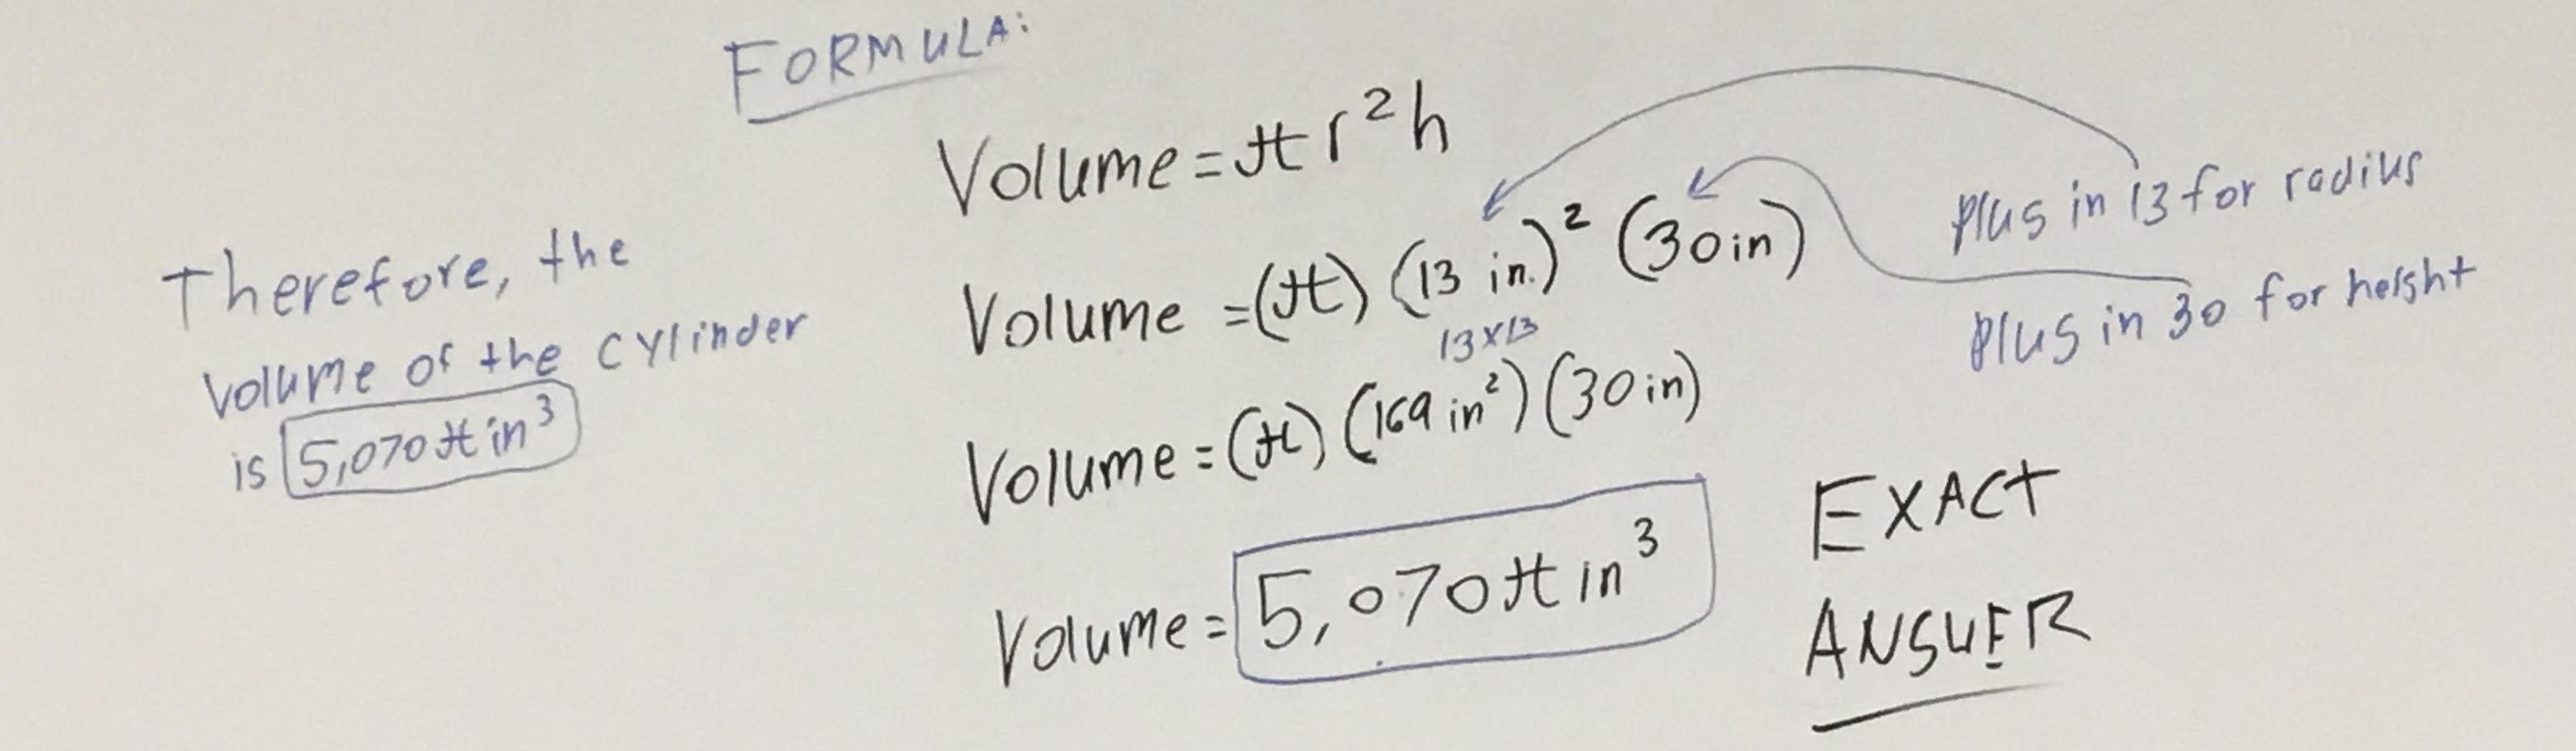 FORMULA:
Volume = π r² h
Volume = (π) (13 in.)² (30 in)
13x13
Volume = (π) (169 in²) (30 in)
Volume = 5,070 π in³
plug in 13 for radius
plug in 30 for height
EXACT
ANSWER
Therefore, the
volume of the cylinder
is 5,070 π in³